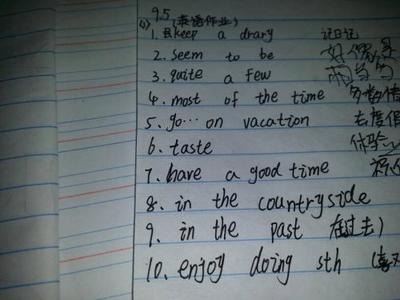 9.5 (英语作业)
1. keep a drary 记日记
2. seem to be 好像是
3. quite a few 相当多
4. most of the time
5. go... on vacation 去度假
6. taste
7. have a good time
8. in the countryside
9. in the past 在(过去)
10. enjoy doing sth